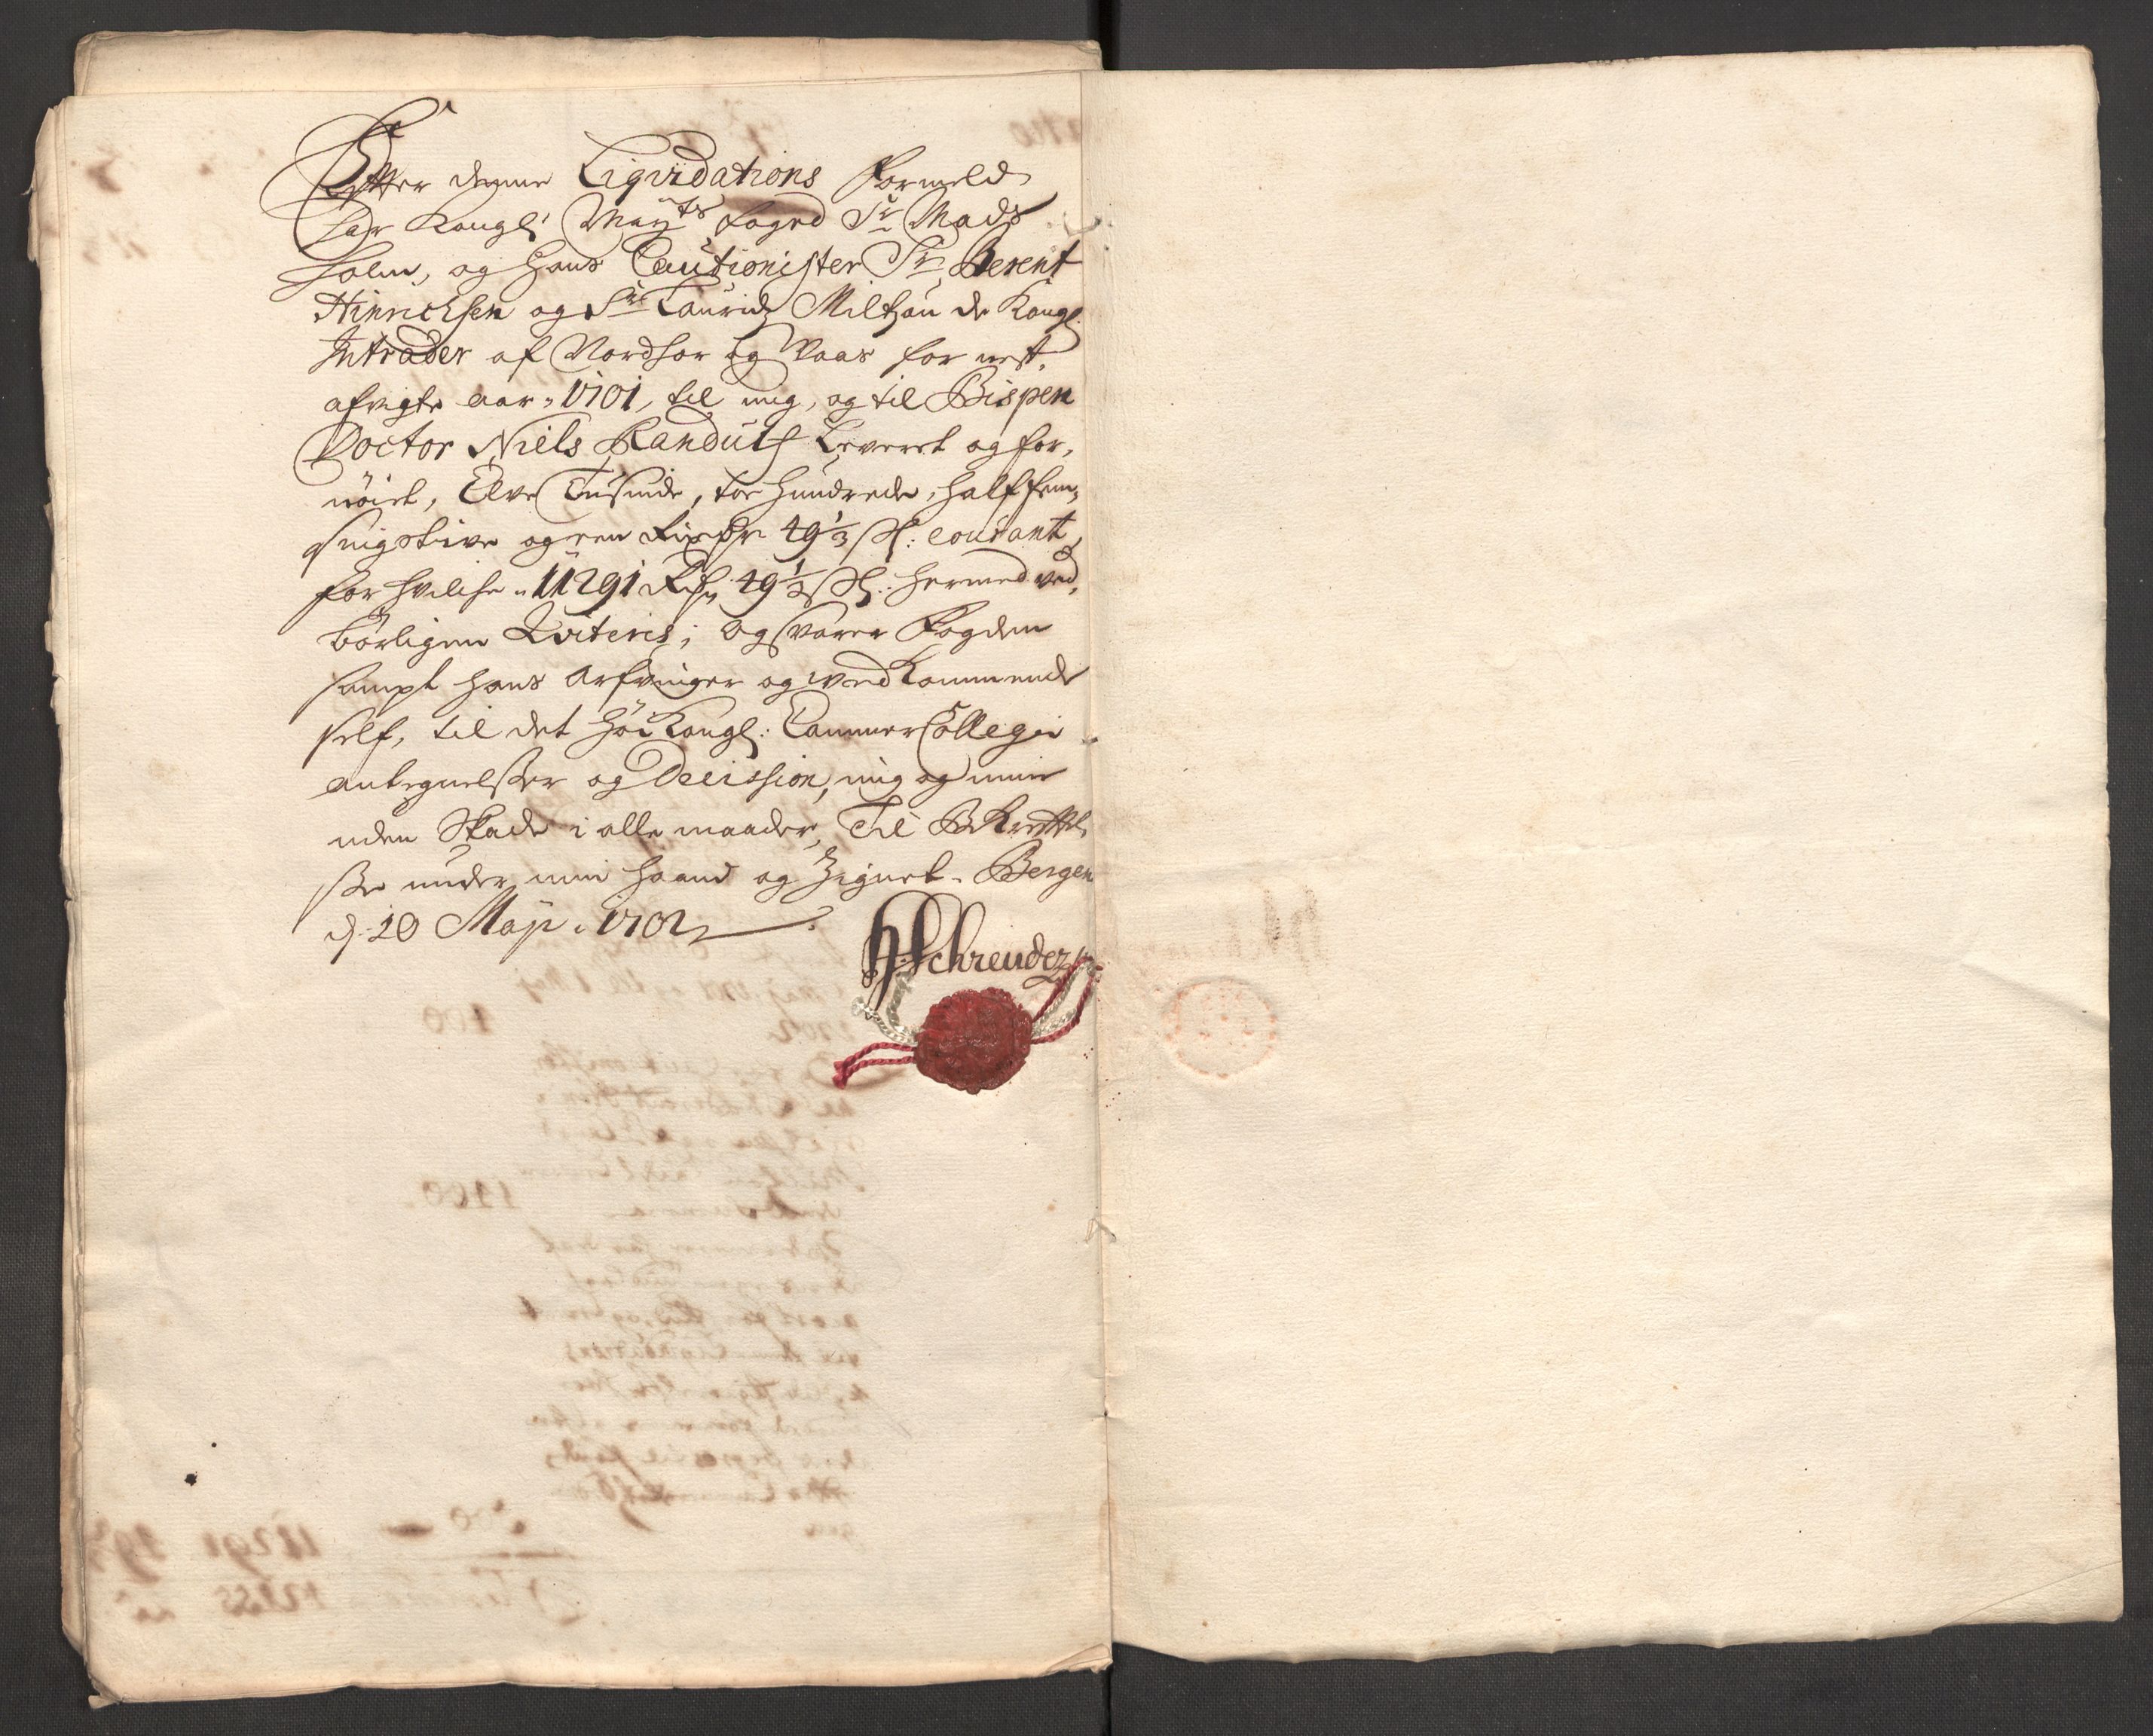 Effter denne Liqvidations formeld
har Kongl: Mayts foged Sr Mads
holm, og hans Cautionister Sr Berent
Hinrichsen og Sr Lauridz Miltzau de Kongl:
Intrader af Nordhor og Vaas for nest,
afvigte aar 1701, til mig, og til Bispen
Doctor Niels Randulf Leveret og for,
nöiet, Elve Tusinde, toe hundrede, half fem,
sinds tiuve og een Rixdr 49 1/3 s: courant,
for hvilche 11291 Rdr 49 1/3 s: hermed ved,
börligen Qviteris; og svarer fogden
sampt hans arfvinger og vedkommende
self, til det höi Kongl: CammerCollegii
antegnelsser og Decission, mig og mine
uden skade i alle maader, Til Bekrefftel,
sse under min haand og Zignet. Bergen
d: 20 Maji 1702
H Schreuder